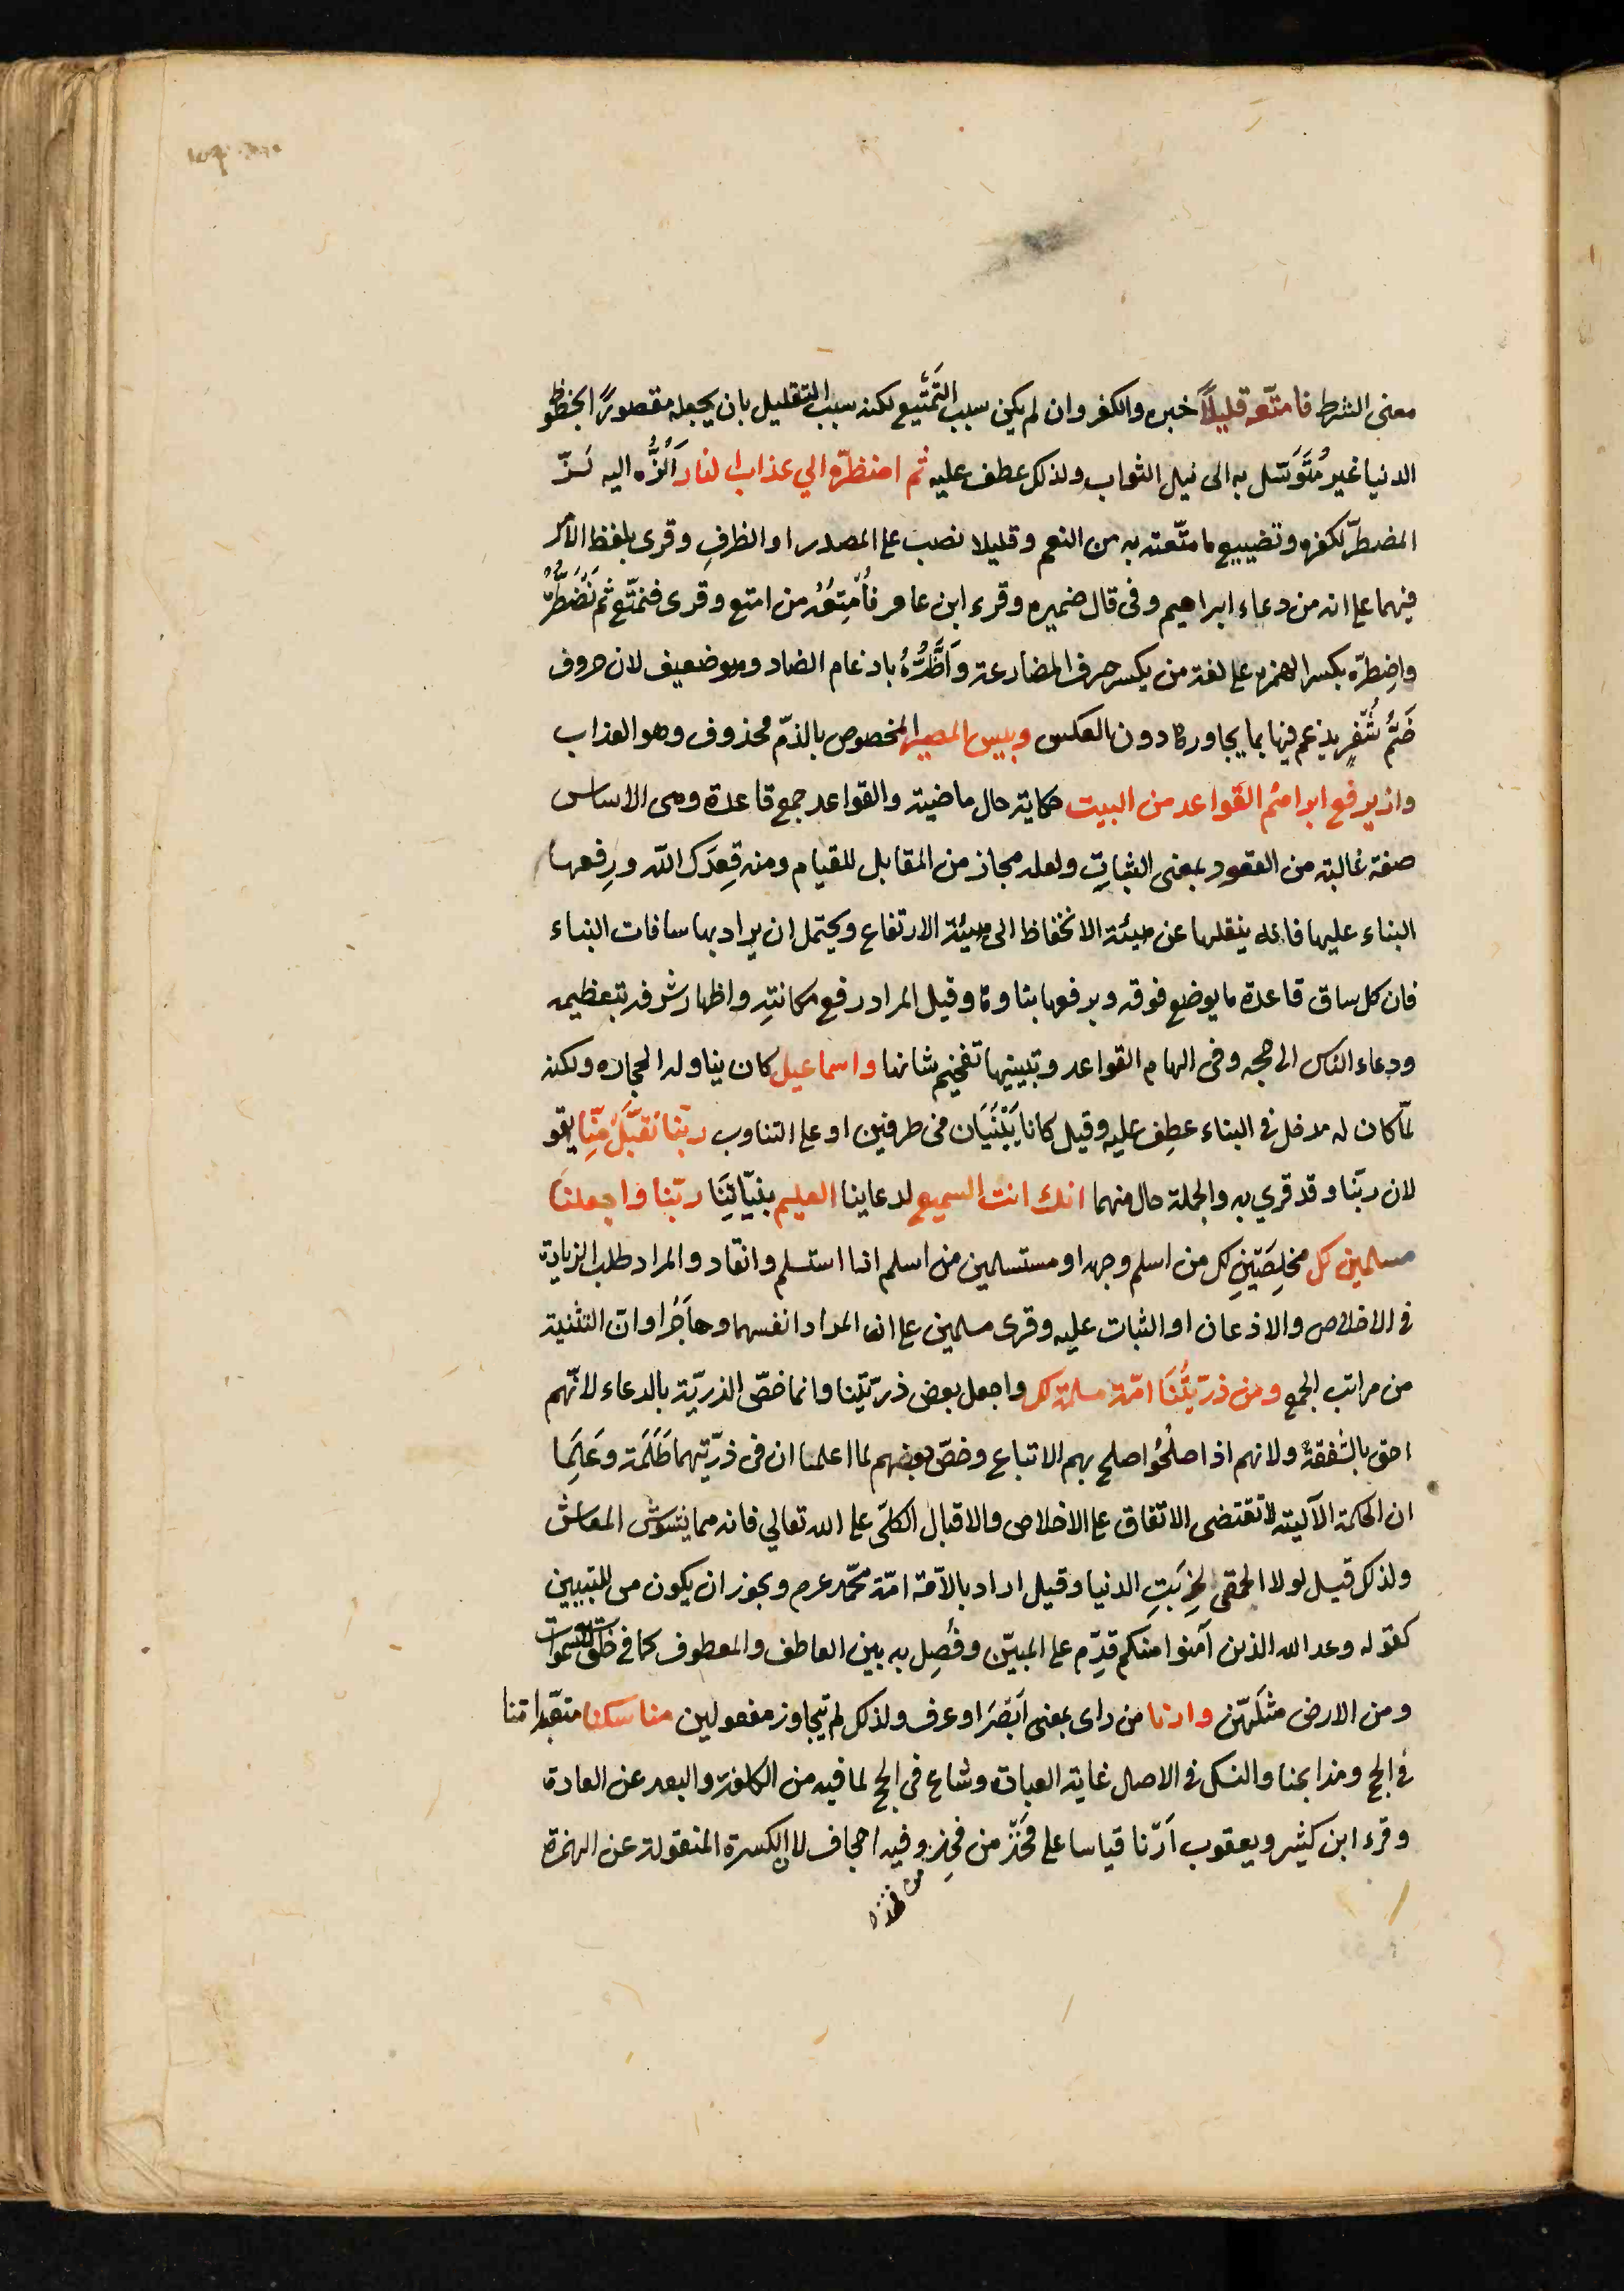 معنى الشرط فامتّعه قليلاً خبره والكفر وان لم يكن سبب التَمتّيع لكنه سبب التقليل بان يجعله مقصورًا بحظوظ
الدنيا غير مُتَوَسّل به الى نيل الثواب ولذلك عطف عليه ثم اضطرّه الي عذاب النار اَلُزُّه اليه لَزّ
المضطرّ لكفره وتضييع ما متّعته به من النعم وقليلا نصب على المصدر او الظرفِ وقرئ بلفظ الامر
فيهما على انه من دعاء ابراهيم وفى قال ضميره وقرء ابن عامر فأُمْتِعُه من امتع وقرى فنمتّع ثم نَضْطَرُّه
واِضطرّه بكسر الهمزه على لغة من يكسر حرف المضارعة واَطَّرُّهُ بادغام الضاد وهو ضعيف لان حروف
ضَمُّ شُفْرٍ يدغم فيها بما يجاورها دون العكس وبيس المصير المخصوص بالذمّ محذوف وهو العذاب
واذ يرفع ابراهيم القواعد من البيت حكاية حال ماضية والقواعد جمع قاعدة وهى الاساس
صفة غالبة من القعود بمعنى الثباتِ ولعله مجاز من المقابل للقيام ومنه قِعدَك الله ورِفعها
البناء عليها فانه ينقلها عن هيئة الانخفاظ الى هيئة الارتفاع ويحتمل ان يراد بها سافات البناء
فان كل ساق قاعدة ما يوضع فوقه ويرفعها بناوها وقيل المراد رفع مكانتِه واظهار شرفه بتعظيمه
ودعاء الناس الى حجه وفى ابهام القواعد وتبيينها تفخيم شانها واسماعيل كان يناوله الحجاره ولكنه
لمّا كان له مدخل فى البناء عطِف عليه وقيل كانا يَبْنَيَان فى طرفين او على التناوب ربّنا تَقبَّل مّنِا يقو
لان ربّنا وقد قري به والجملة حال منهما انك انت السميع لدعاينا العليم بنيّاتِنَا ربّنا واجعلنا
مسلمين لك مخلِصَيَنِ لك من اسلم وجهه او مستسلمين من اسلم اذا استسلم وانقاد والمراد طلب الزيادة
فى الاخلاص والاذعان او الثبات عليه وقرى مسلمين على ان المراد انفسهما وهاجَرُ او ان التثنية
من مراتب الجمع ومن ذرّيّتُنَا امّة مسلمة لك واجعل بعض ذرّيّتنا وانما خصّ الذريّة بالدعاء لانّهم
احق بالشفقة ولانهم اذا صلُحُوا صلح بهم الاتباع وخصّ بعضهم لما اعلما ان فى ذرّيتهما ظَلَمَة وعَلِمَا
ان الحكمة الآلية لا تقتضى الاتفاق على الاخلاص والاقبال الكلىّ على الله تعالي فانه مما يشوش المعاش
ولذلك قيل لولا الحمقى لخرِبَتِ الدنيا وقيل اراد بالاّمة امّة محّمد عرم ويجوز ان يكون من للتبيين
كقوله وعد الله الذين آمنوا منكم قدِّم على المبيّن وفُصِل به بين العاطف والمعطوف كما فى خلق سبع سموات
ومن الارض مثلهّن وارنا من راى بمعنى اَبْصَرَ او عرف ولذلك لم يتجاوز مفعولين مناسكنا متعّبداتنا
فى الحج ومذابحنا والنسك فى الاصل غاية العبادة وشاع فى الحج لما فيه من الكلفة والبعد عن العادة
وقرء ابن كثير ويعقوب اَرْنا قياسا على فَخْذٌ من فَخِذ وفيه اجحاف لان الكسرة المنقولة عن الهمزة